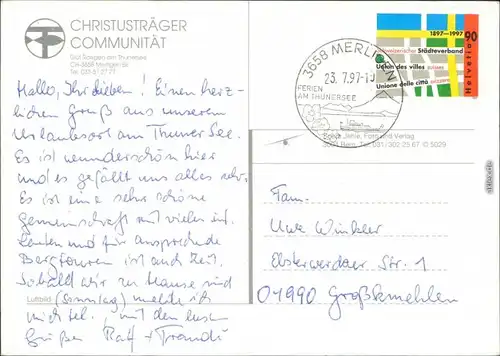 CHRISTUSTRÄGER
COMMUNITÄT
Gut Ralligen am Thunersee
CH-3658 Merligen BE
Hallo, Ihr Lieben! Einen herz-
lichen Gruß aus unserem
Urlaubsort am Thuner See.
Es ist wunderschön hier
und es gefällt uns alles sehr.
Es ist eine sehr schöne
Gemeinschaft mit vielen
Leuten und für
Bergtouren ist auch Zeit.
Sobald wir zu Hause sind
Luftbild
(Sonntag) melde ich
mich tel. mit den
Grüßen Ralf + Traudi
3658 MERLIGEN
23.7.97-10
FERIEN
AM THUNERSEE
1897-1997
90
Schweizerischer Städteverband
Union des villes suisses
Unione delle città svizzere
Helvetia
Verlag
3001 Bern, Tel. 031/302 25 67 © 5029
Fam.
Uwe Winkler
Elsterwerdaer Str. 1
01990 Großkmehlen